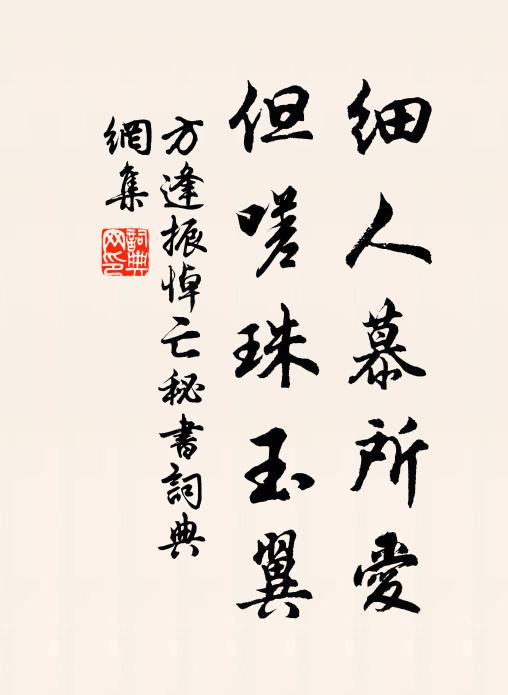 细人慕所愛
但嗟珠玉翼
方逢振悼亡秘書詞典
網集
詞典網印